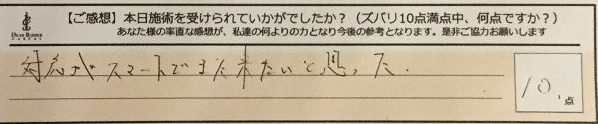 【ご感想】本日施術を受けられていかがでしたか？（ズバリ10点満点中、何点ですか？）
あなた様の率直な感想が、私達の何よりの力となり今後の参考となります。是非ご協力お願いします
DEAR BARBER
CASUAL
対応がスマートでまた来たいと思った.
10.点